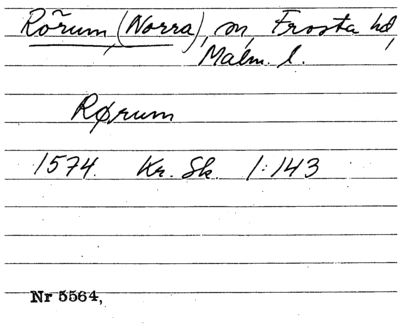 Rõrum, (Norra), sn, Frosta hd,
Malm. l.
Rørum
1574. Kr. Sk. 1:143
Nr 5564,